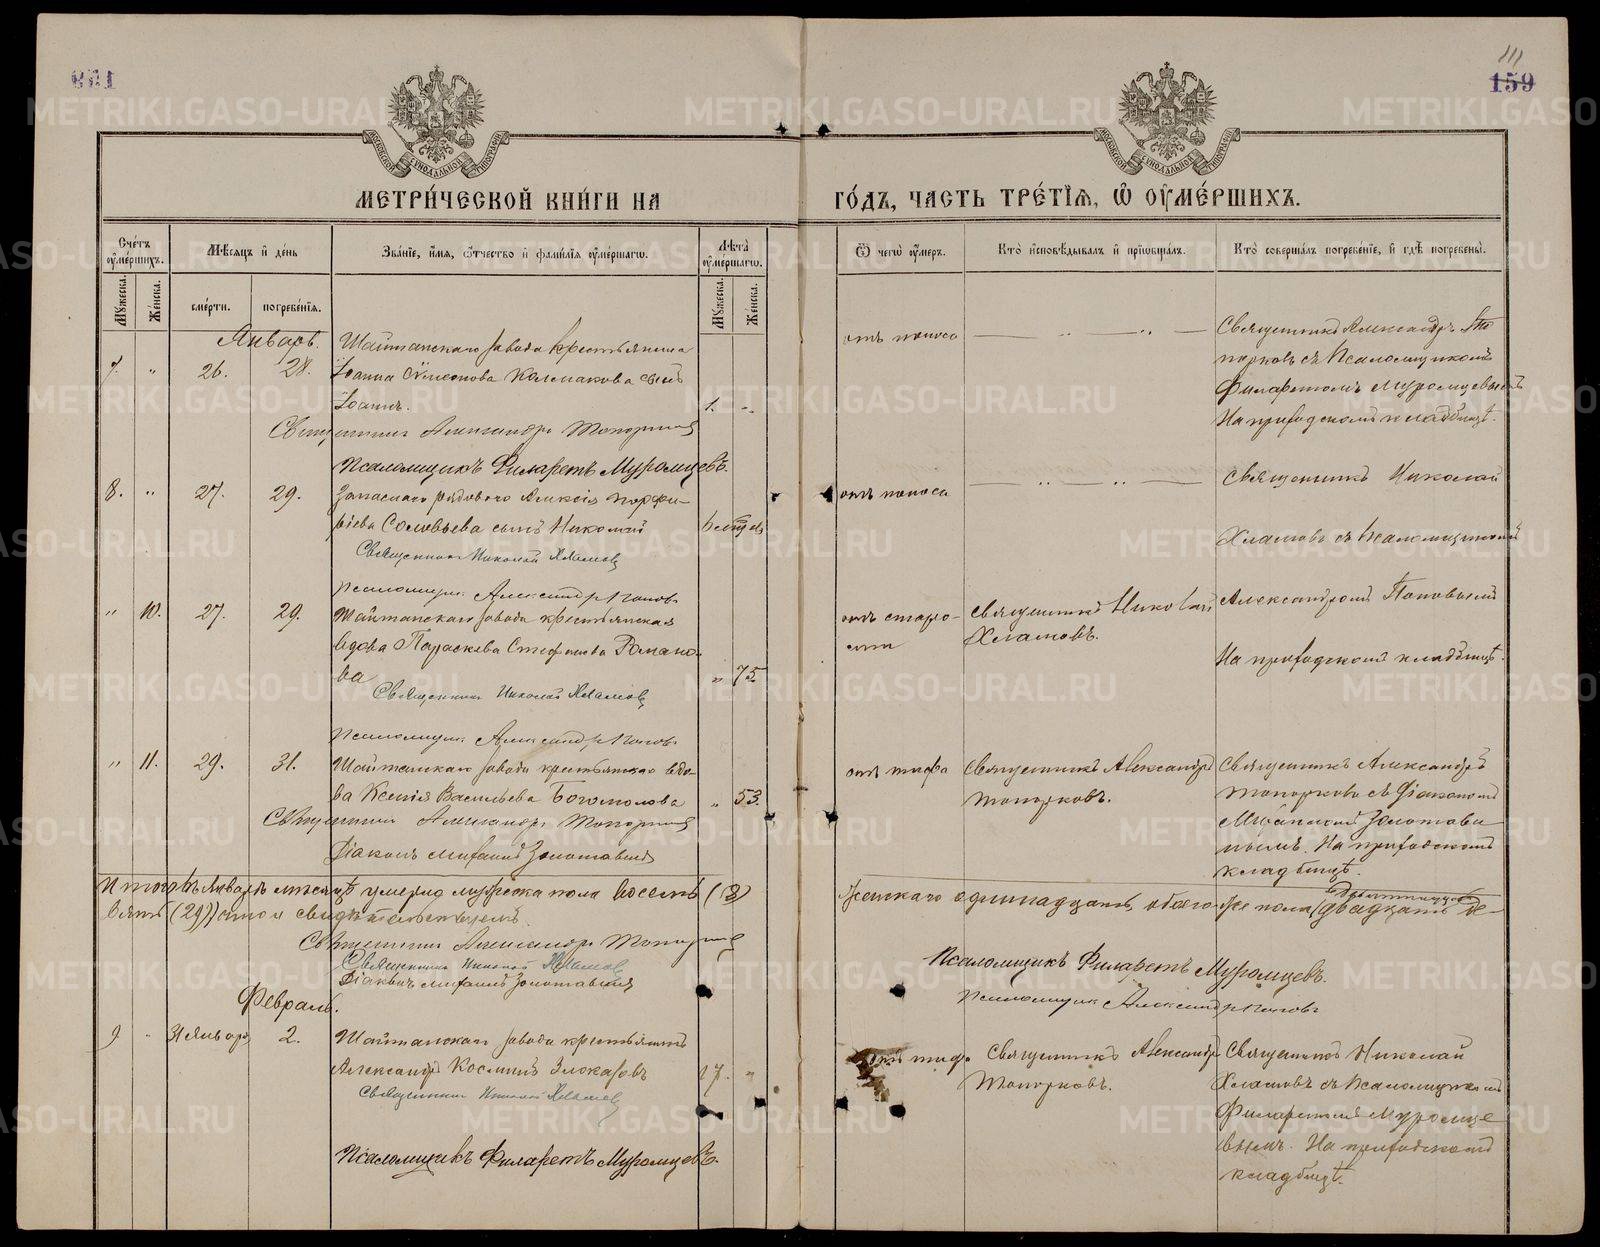 159
111
159
МЕТРИ́ЧЕСКОЙ КНИ́ГИ НА ГО́ДЪ, ЧАСТЬ ТРЕ́ТІѦ, Ѿ ОУ҆МЕ́РШИХЪ.
Счетъ оумершихъ.
Мужеска.
Женска.
Мѣсяцъ и день
смерти.
погребенія.
Званіе, имя, отчество и фамилія оумершаго.
Лѣта оумершаго.
Мужеска.
Женска.
Ѿ чего оумеръ.
Кто исповѣдывалъ и пріобщалъ.
Кто совершалъ погребеніе, и гдѣ погребены.
Январь.
7 " 26. 28.
Шайтанскаго завода крестьянина
Іоанна Сѵмеонова Колмакова сынъ
Іоаннъ.
1. "
отъ поноса
Священникъ Александръ То
порковъ съ Псаломщикомъ
Филаретомъ Муромцевымъ
На приходскомъ кладбищѣ.
Священникъ Александръ Топорковъ
Псаломщикъ Филаретъ Муромцевъ.
8. " 27. 29.
Запаснаго рядового Алексія Порфи-
ріева Соловьева сынъ Николай
6 мѣсяц
отъ поноса
Священникъ Николай
Хламовъ съ Псаломщикомъ
Александромъ Поповымъ
На приходскомъ кладбищѣ.
Священникъ Николай Хламовъ
Псаломщикъ Александръ Поповъ
" 10. 27. 29.
Шайтанскаго завода крестьянская
вдова Параскева Стефанова Романо-
ва
" 75
отъ старо-
сти
Священникъ Николай
Хламовъ.
Священникъ Николай Хламовъ
Псаломщикъ Александръ Поповъ
" 11. 29. 31.
Шайтанскаго завода крестьянская вдо-
ва Ксенія Васильева Богомолова
" 53.
отъ тифа
Священникъ Александръ
Топорковъ.
Священникъ Александръ
Топорковъ съ Діакономъ
Михаиломъ Золотави-
нымъ. На приходскомъ
кладбищѣ.
Священникъ Александръ Топорковъ
Діаконъ Михаилъ Золотавинъ
Итого въ Январѣ мѣсяцѣ умерло мужеска пола восемь (8)
женскаго одиннадцать, обоего же пола двадцать де-
вять (29)
свидѣтельствуемъ.
Священникъ Александръ Топорковъ
Священникъ Николай Хламовъ
Діаконъ Михаилъ Золотавинъ
Псаломщикъ Филаретъ Муромцевъ.
Псаломщикъ Александръ Поповъ
Февраль.
9 " 31 января 2.
Шайтанскаго завода крестьянинъ
Александръ Косминъ Злоказовъ
17. "
отъ тифа
Священникъ Александръ
Топорковъ.
Священникъ Николай
Хламовъ съ Псаломщикомъ
Филаретомъ Муромце
вымъ. На приходскомъ
кладбищѣ.
Священникъ Николай Хламовъ
Псаломщикъ Филаретъ Муромцевъ.
METRIKI.GASO-URAL.RU